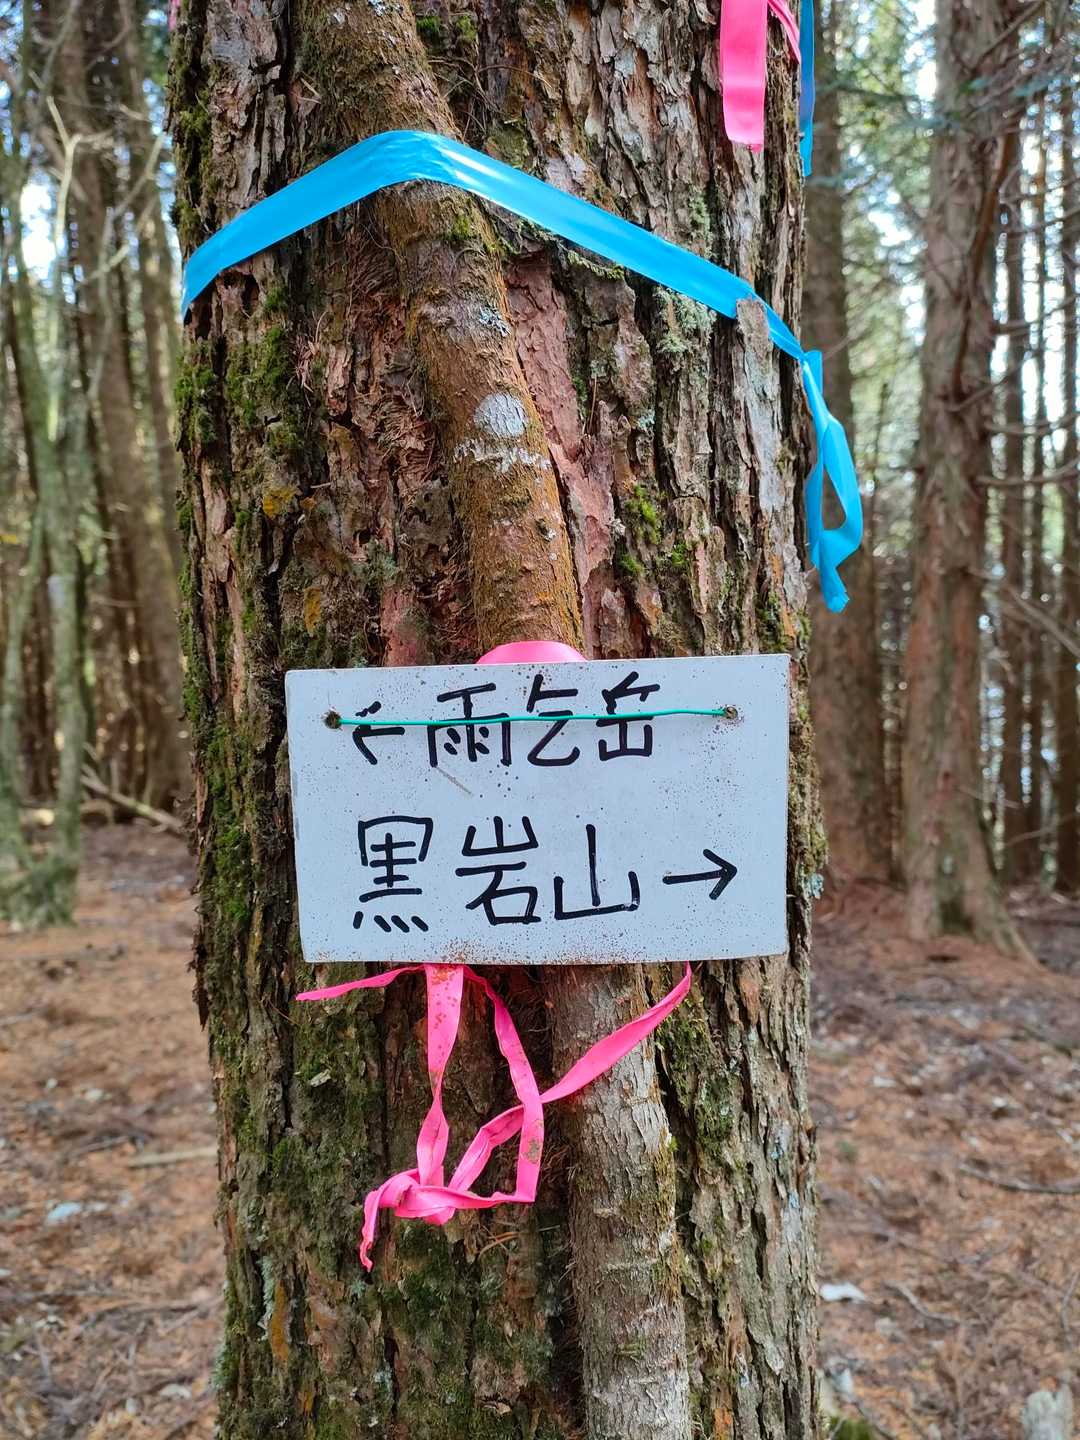 ← 雨乞岳
黒岩山 →